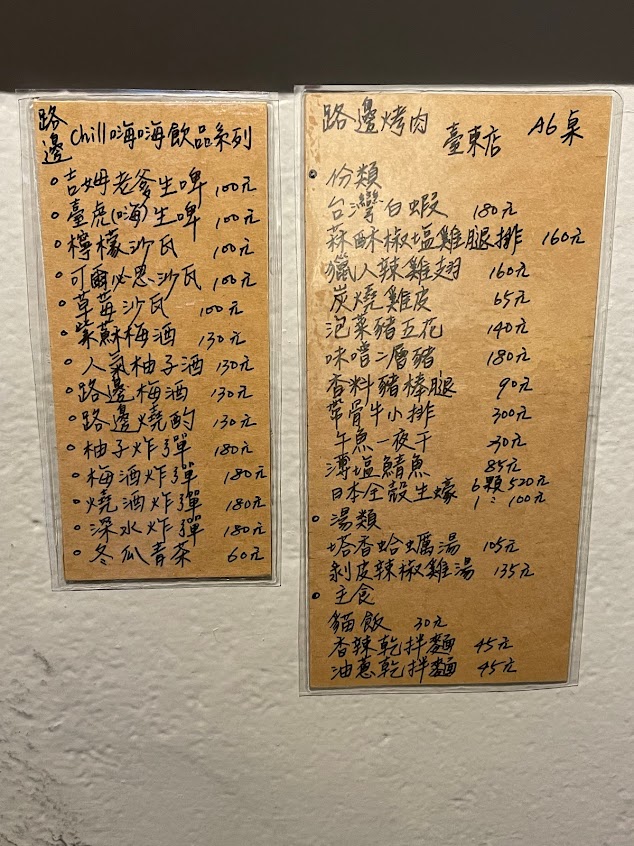 路邊 Chill嗨嗨飲品系列
吉姆老爹生啤 100元
臺虎(嗨)生啤 100元
檸檬沙瓦 100元
可爾必思沙瓦 100元
草莓沙瓦 100元
紫蘇梅酒 130元
人氣柚子酒 130元
路邊梅酒 130元
路邊燒酌 130元
柚子炸彈 180元
梅酒炸彈 180元
燒酒炸彈 180元
深水炸彈 180元
冬瓜青茶 60元
路邊烤肉 臺東店 A6桌
份類
台灣白蝦 180元
蒜酥椒塩雞腿排 160元
獵人辣雞翅 160元
炭燒雞皮 65元
泡菜豬五花 140元
味噌二層豬 180元
香料豬棒腿 90元
帶骨牛小排 300元
午魚一夜干 30元
薄塩鯖魚 85元
日本全殼生蠔 6顆520元
1: 100元
湯類
塔香蛤蠣湯 105元
剝皮辣椒雞湯 135元
主食
貓飯 30元
香辣乾拌麵 45元
油蔥乾拌麵 45元